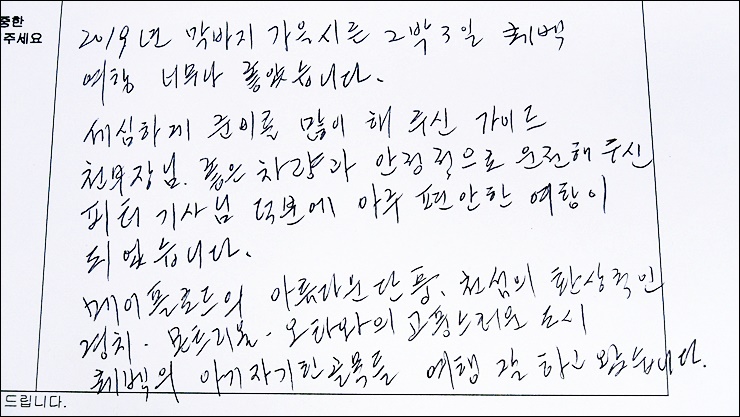 중한
주세요
2019년 막바지 가을시즌 2박 3일 퀘백
여행 너무나 좋았습니다.
세심하게 준비를 많이 해 주신 가이드
천부장님. 좋은 차량과 안정적으로 운전해 주신
피터 기사님 덕분에 아주 편안한 여행이
되었습니다.
메이플로드의 아름다운 단풍, 천섬의 환상적인
경치. 몬트리올. 오타와의 고풍스러운 도시
퀘벡의 아기자기한 골목들 여행 잘 하고 왔습니다.
드립니다.